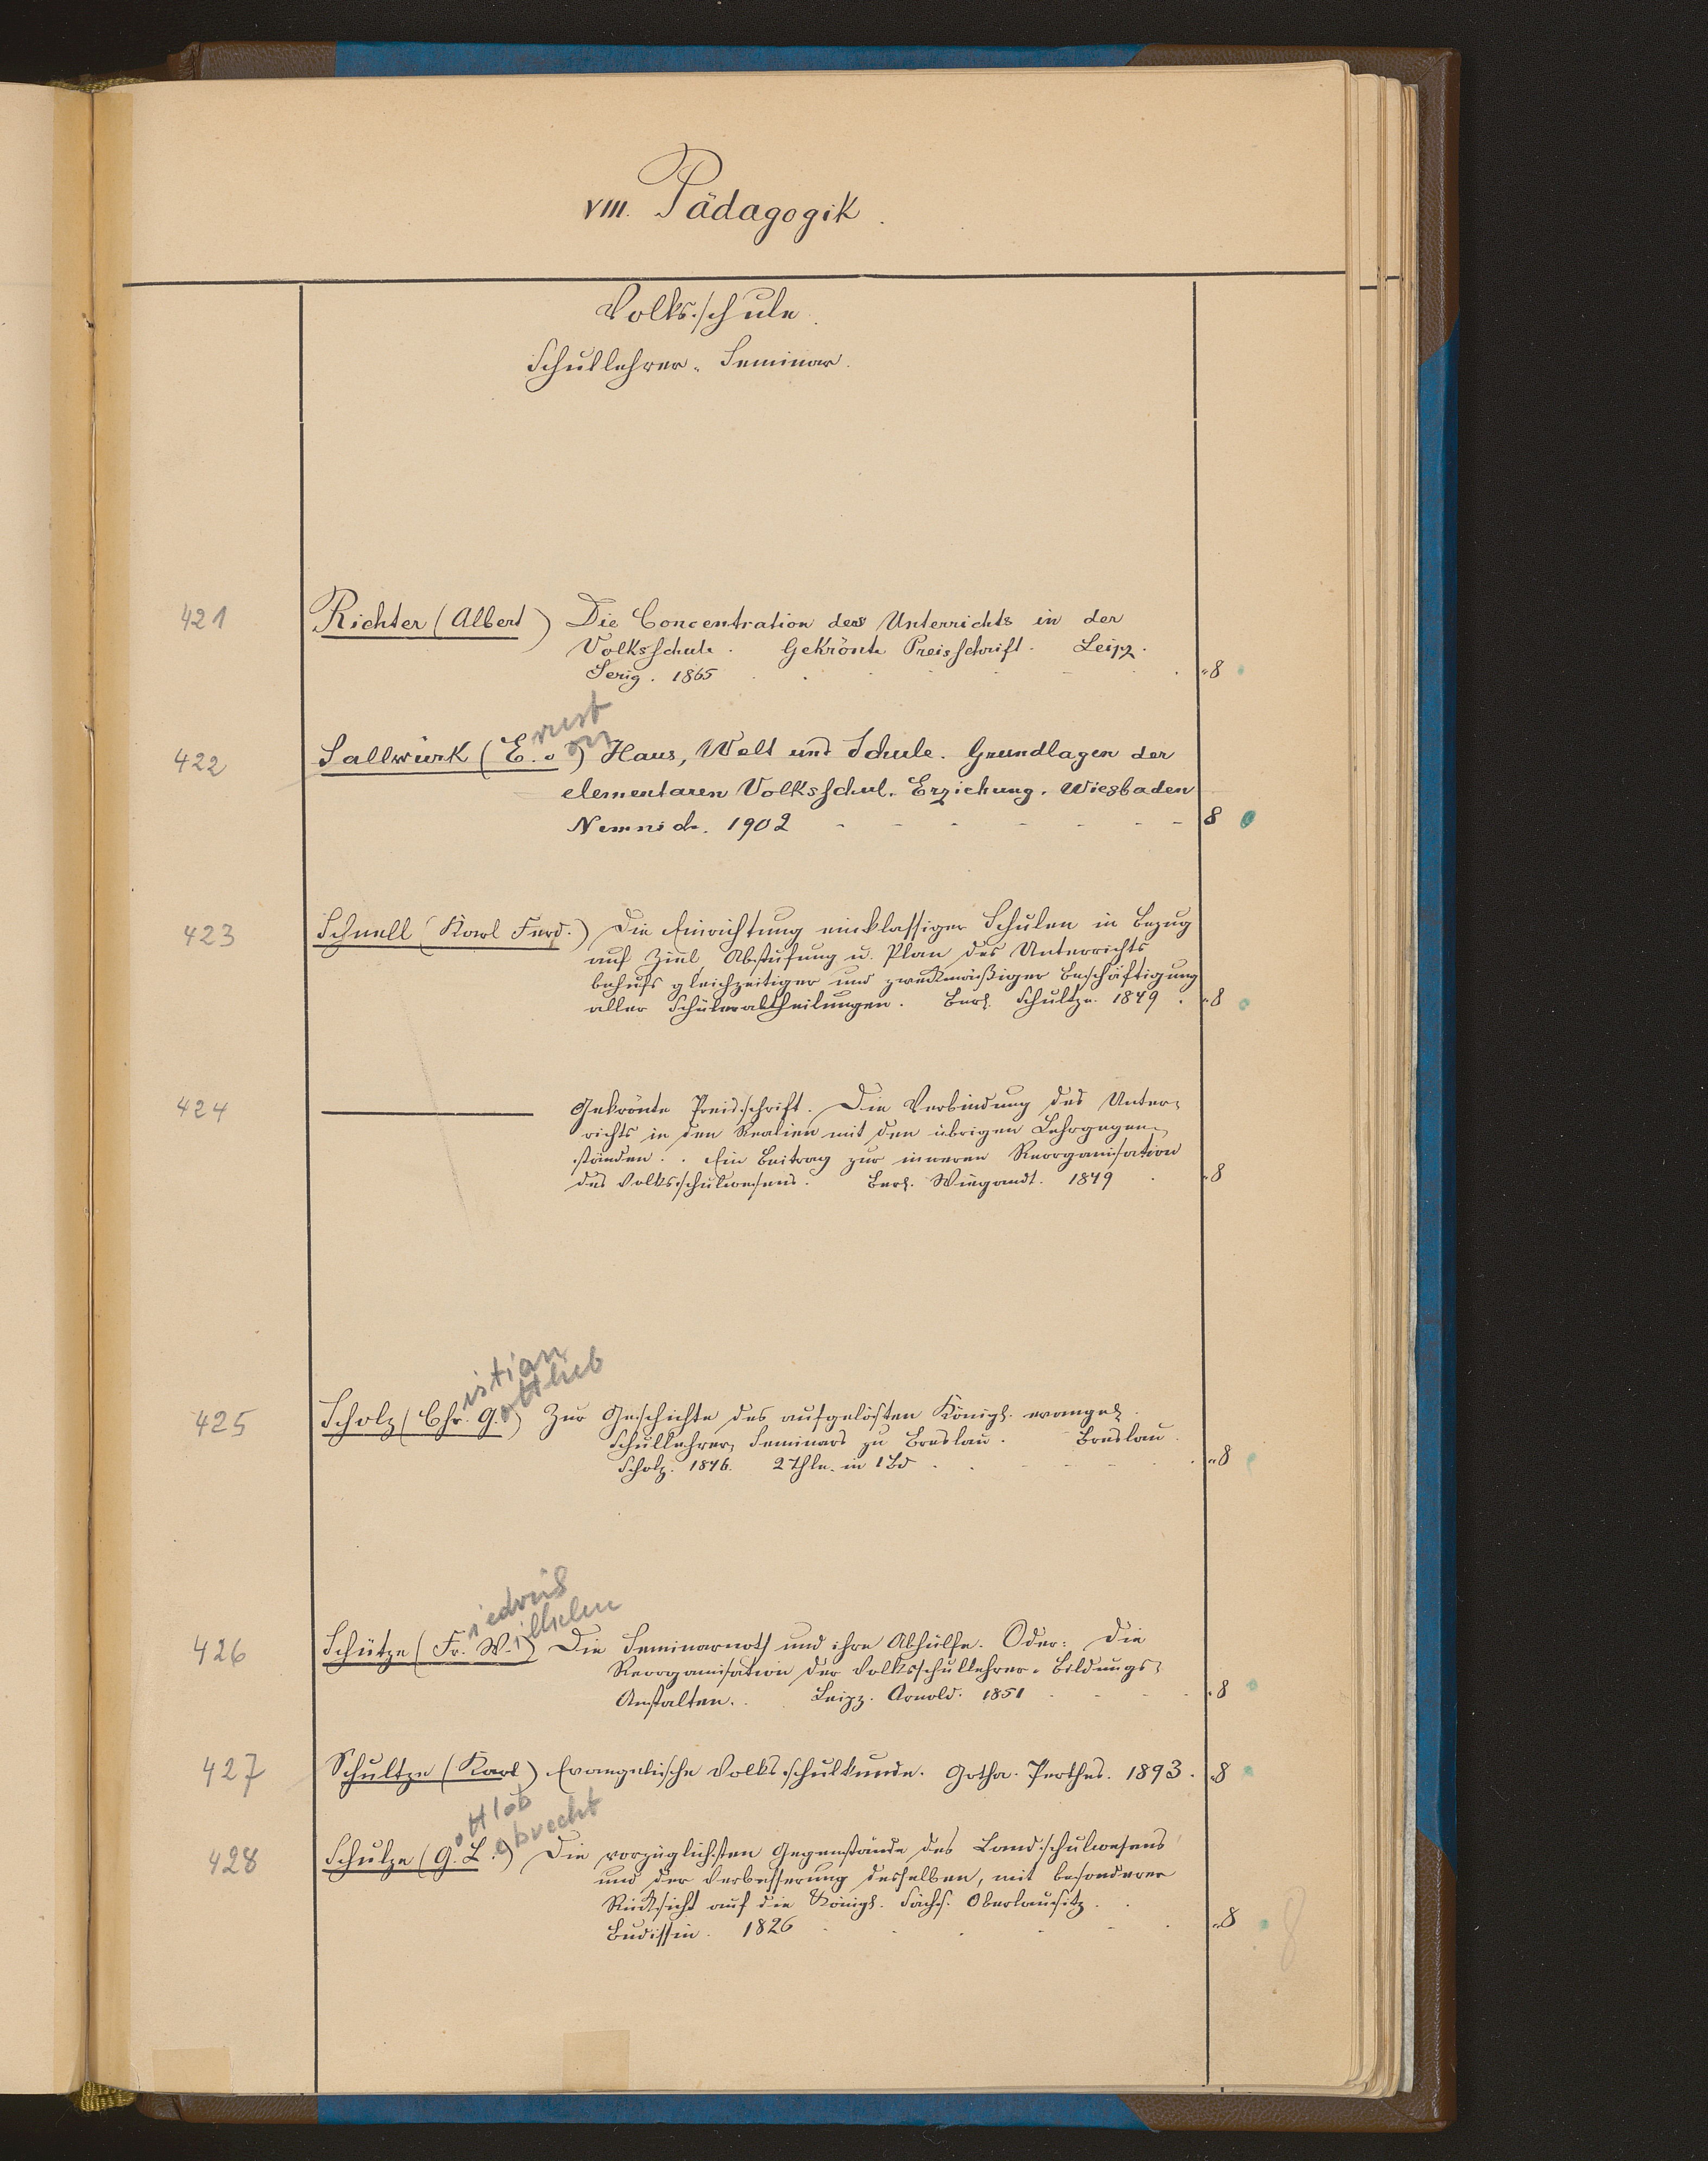 VIII. Pädagogik.
Volksschule.
Schullehrer-Seminar.
421 Richter (Albert) Die Concentration des Unterrichts in der
Volksschule. Gekrönte Preisschrift. Leipz.
Serig. 1865 8
rnst
on
422 Sallwürk (E. v.) Haus, Welt und Schule. Grundlagen der
elementaren Volksschul-Erziehung. Wiesbaden
Nemnich. 1902 8
423 Schnell (Karl Ferd.) Die Einrichtung einklassiger Schulen in Bezug
auf Ziel Abstufung u. Plan des Unterrichts
behufs gleichzeitiger und zweckmäßiger Beschäftigung
aller Schülerabtheilungen. Berl. Schultze. 1849. 8
424 Gekrönte Preisschrift. Die Verbindung des Unter-
richts in den Realien mit den übrigen Lehrgegen-
ständen. Ein Beitrag zur inneren Reorganisation
des Volksschulwesens. Berl. Wiegandt. 1849 8
istian
ottlieb
425 Scholz (Chr. G.) Zur Geschichte des aufgelösten Königl. evangel.
Schullehrer-Seminars zu Breslau. Breslau.
Scholz. 1846. 2 Thle. in 1 Bd 8
iedrich
ilhelm
426 Schütze (Fr. W.) Die Seminarnoth und ihre Abhülfe. Oder: Die
Reorganisation der Volksschullehrer-Bildungs-
Anstalten. Leipz. Arnold. 1851 8
427 Schultze (Karl) Evangelische Volksschulkunde. Gotha. Perthes. 1893. 8
ottlob
ebrecht
428 Schulze (G. L.) Die vorzüglichsten Gegenstände des Landschulwesens
und der Verbesserung desselben, mit besonderer
Rücksicht auf die Königl. Sächs. Oberlausitz.
Budissin. 1826 8
8